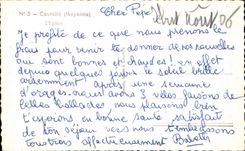 N° 5 - Centilla (Mayenne)
L'Eglise
Cher Pepe
Août 06
Je profite de ce que nous prenons le
frais pour venir te donner de nos nouvelles
qui sont bonnes et chaudes ! en effet
depuis quelques jours le soleil brille
ardemment après une semaine
d'orages. nous avons 3 vélos faisons de
belles ballades. nous pensons bien
t'espérons en bonne santé satisfait
de ton séjour vers nous t'embrassons
tous trois affectueusement